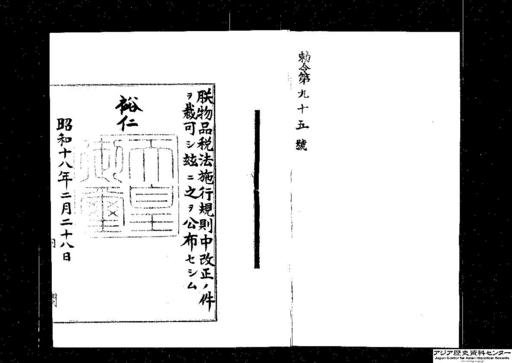 勅令第九十五號
朕物品税法施行規則中改正ノ件
ヲ裁可シ玆ニ之ヲ公布セシム
裕仁
天皇御璽
昭和十八年二月二十八日
アジア歴史資料センター
Japan Center for Asian Historical Records